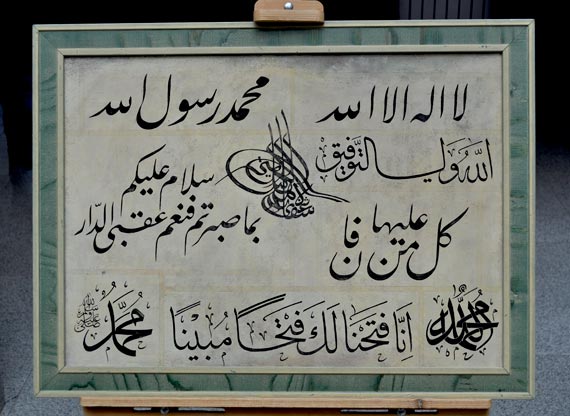 لا اله الا الله
محمد رسول الله
الله ولي التوفيق
سلام عليكم
بما صبرتم فنعم عقبى الدار
كل من عليها فان
إنا فتحنا لك فتحا مبينا
محمد